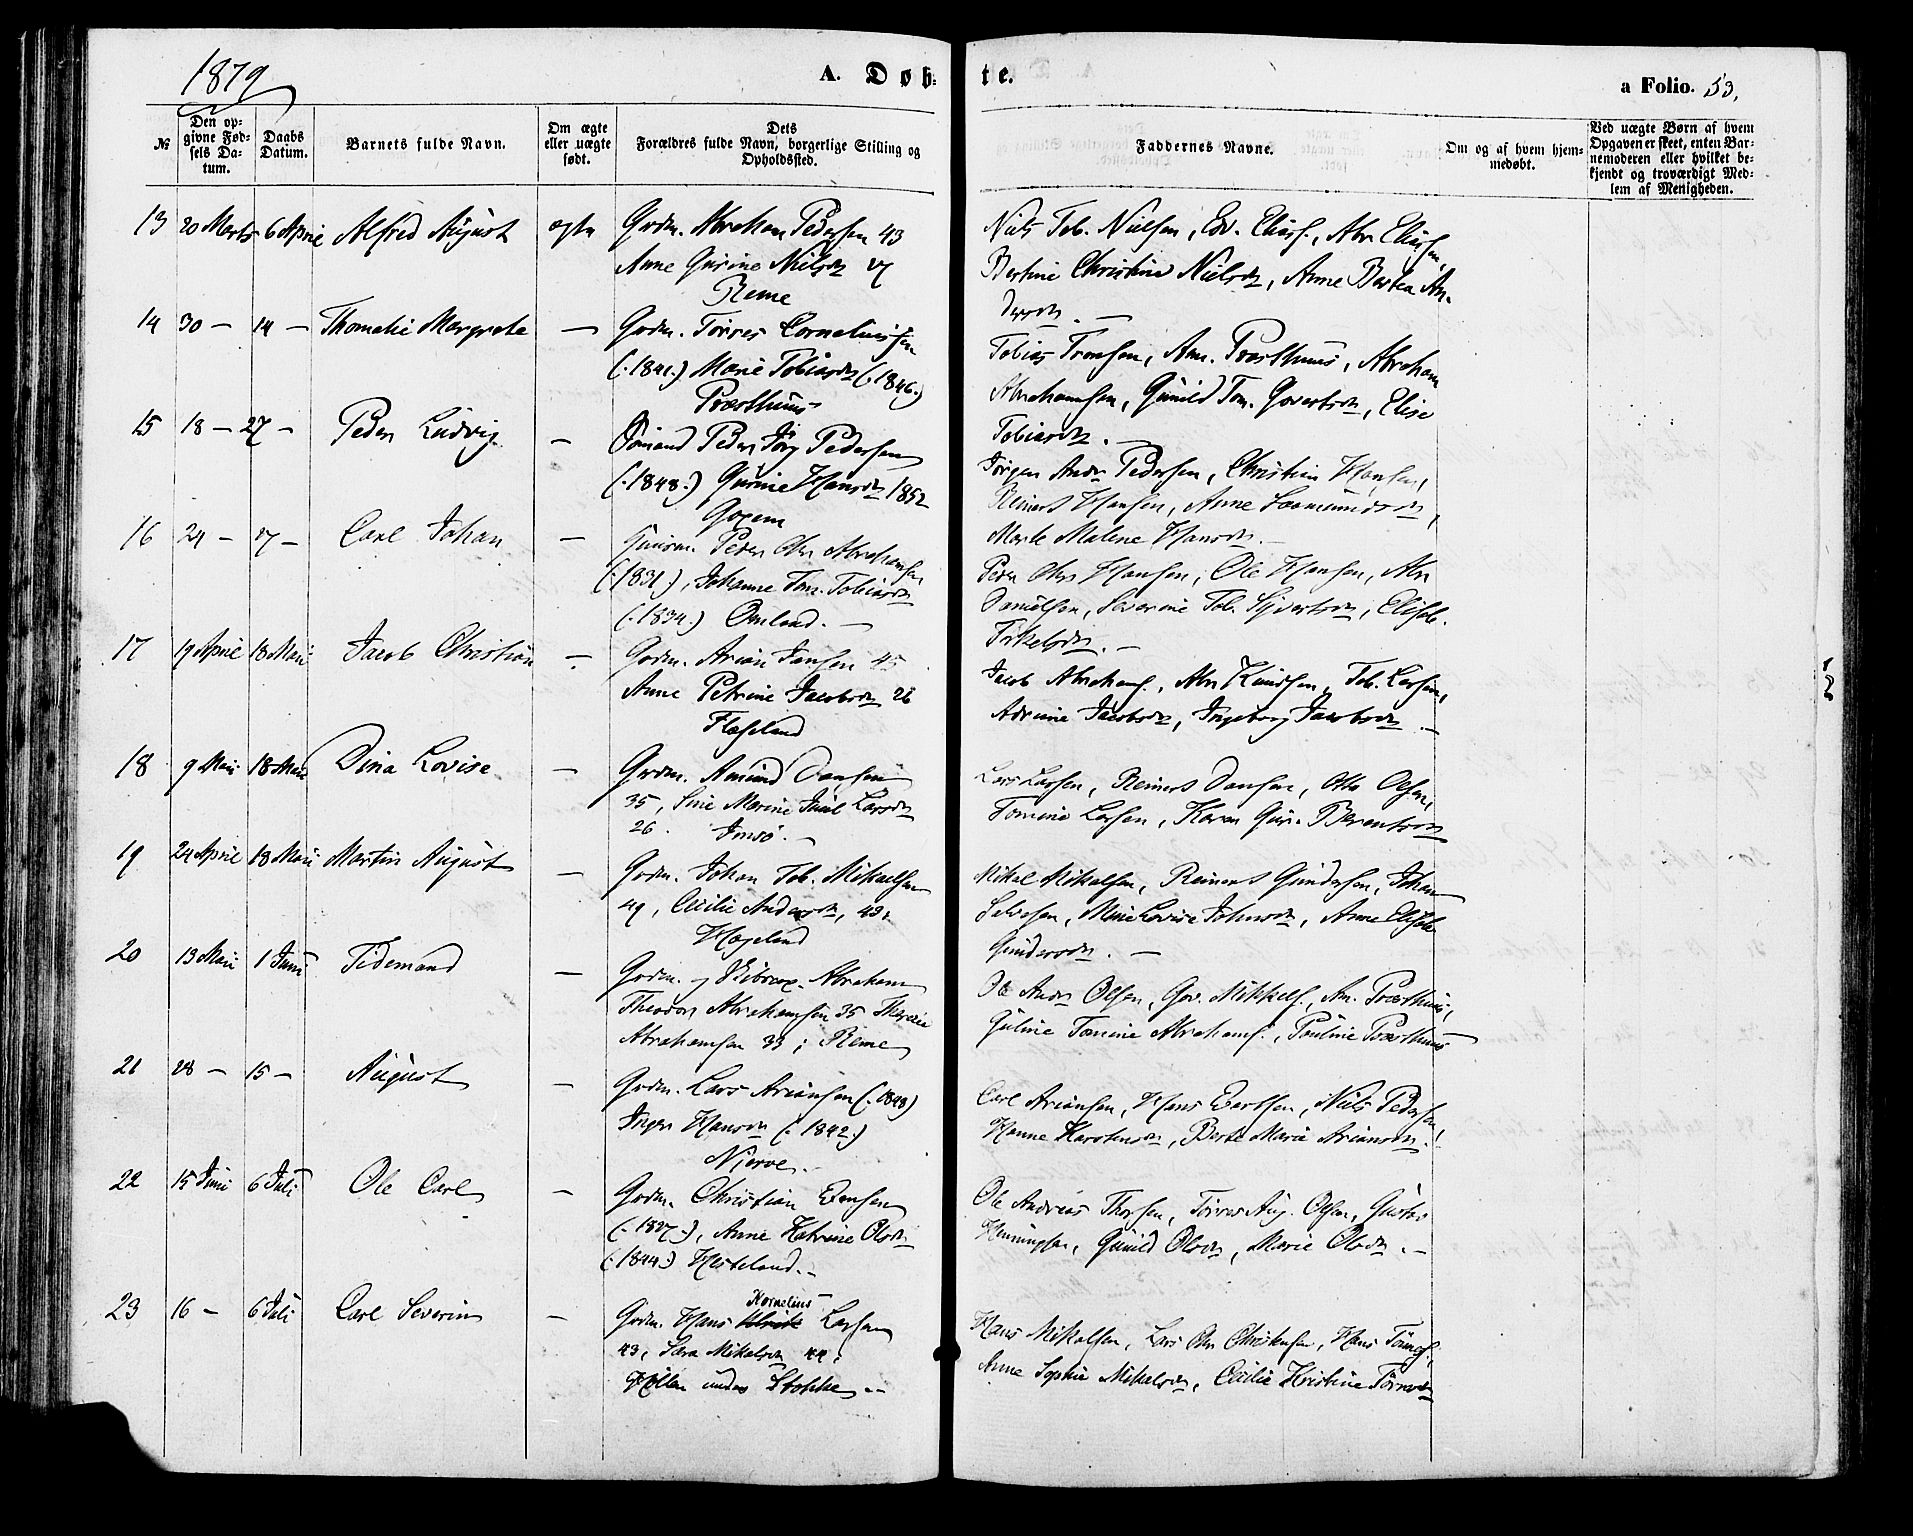 1879
A. Døb-
te.
a Folio. 53.
№
Den op-
givne Fød-
sels Da-
tum.
Daabs
Datum.
Barnets fulde Navn.
Om ægte
eller uægte
født.
Dets
Forældres fulde Navn, borgerlige Stilling og
Opholdssted.
Faddernes Navne.
Om og af hvem hjem-
medøbt.
Ved uægte Børn af hvem
Opgaven er skeet, enten Bar-
nemoderen eller hvilket be-
kjendt og troværdigt Med-
lem af Menigheden.
13 20 Marts 6 April Alfred August ægte Gdm. Abraham Pedersen 43
Anne Gurine Nielsdtr
Reme
Niels Tob. Nielsen, Edv. Eliass., Abr Eliassen,
Bertine Christine Nielsdtr, Anne Bertea An-
dersdtr. —
14 30 — 14 — Thomalie Margrete — Gdm. Tørres Corneliussen
(: 1841 :) Marie Tobiasdtr (: 1846 :)
Præsthuus
Tobias Tronsen, Am. Præsthuus, Abraham
Abrahamsen, Gunild Tom. Govertsdtr, Elise
Tobiasdtr. —
15 18 — 27 — Peder Ludvig — Sømand Peder Jørg Pedersen
(: 1848 :) Gurine Hansdtr 1852
Jørgen Andr Pedersen, Christian Hansen,
Reinert Hansen, Anne Saamundsdtr,
Marte Malene Hansdtr. —
16 24 — 27 — Carl Johan — Huusm. Peder Chr Abrahamsen
(: 1831 :), Johanne Tom. Tobiasdtr
(: 1834 :) Omland. —
Peder Chr Hansen, Ole Hansen, Abr
Danielsen, Severine Tob. Sivertsdtr, Elisab.
Tirkelsdtr. —
17 19 April 18 Mai Jacob Christian — Gdm. Arian Jansen 45
Anne Petrine Jacobsdtr 26
Flageland
Jacob Abrahams., Abr Knudsen, Tob. Larsen,
Adrine Jacobsdtr, Ingeborg Jacobsdtr. —
18 9 Mai 18 Mai Dina Lovise — Gdm. Amund Dansen
35, Sine Marine Larsdtr
26. Imsø. —
Lars Larsen, Reinert Dansen, Otto Olsen,
Tomine Larsen, Karen Gur. Berentsdtr
19 24 April 18 Mai Martin August — Gdm. Johan Tob. Mikaelsen
49, Cecilie Andersdtr, 49,
Hageland
Mikal Mikalsen, Reinert Gundersen, Johan
Salvesen, Marie Lovise Johnsdtr, Anne Elisab.
Gundersdtr. —
20 13 Mai 1 Juni Tidemand — Gdm. og Skibscap. Abraham
Theodor Abrahamsen 35
Abrahamsen 33; Reme
Ole Andr Olsen, Gov. Mikkels., Am. Præsthuus,
Guline Tomine Abrahams., Pauline Præsthuus
21 28 — 15 — August — Gdm. Lars Ariansen (: 1848)
Inger Hansdtr (: 1842 :)
Njerve. —
Carl Ariansen, Hans Evertsen, Niels Pedersen,
Hanne Karstensdtr, Berte Marie Ariansdtr.
22 15 Juni 6 Juli Ole Carl — Gdm. Christian Evensen
(: 1827 :), Anne Katrine Olsdtr
(: 1844 :) Hesteland. —
Ole Andreas Thorsen, Tørres Aug. Olsen, Gustav
Henningsen, Gunild Olsdtr, Marie Olsdtr. —
23 16 — 6 Juli Carl Severin — Gdm. Hans Kornelius Larsen
43, Sara Mikalsdtr 44,
Hillen under Stokke. —
Hans Mikalsen, Lars Chr Christensen, Hans Tønnes.,
Anne Sophie Mikalsdtr, Cecilie Kristine Tønnesdtr